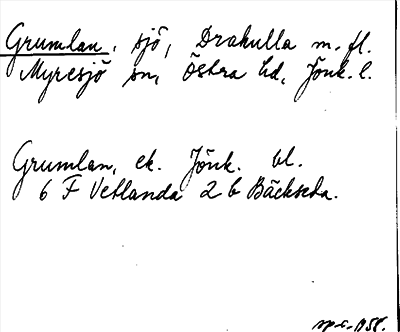 Grumlan, sjö, Drakulla m. fl.
Myresjö sn, Östra hd, Jönk. l.
Grumlan, ek. Jönk. bl.
6 F Vetlanda 2 b Bäckseda.